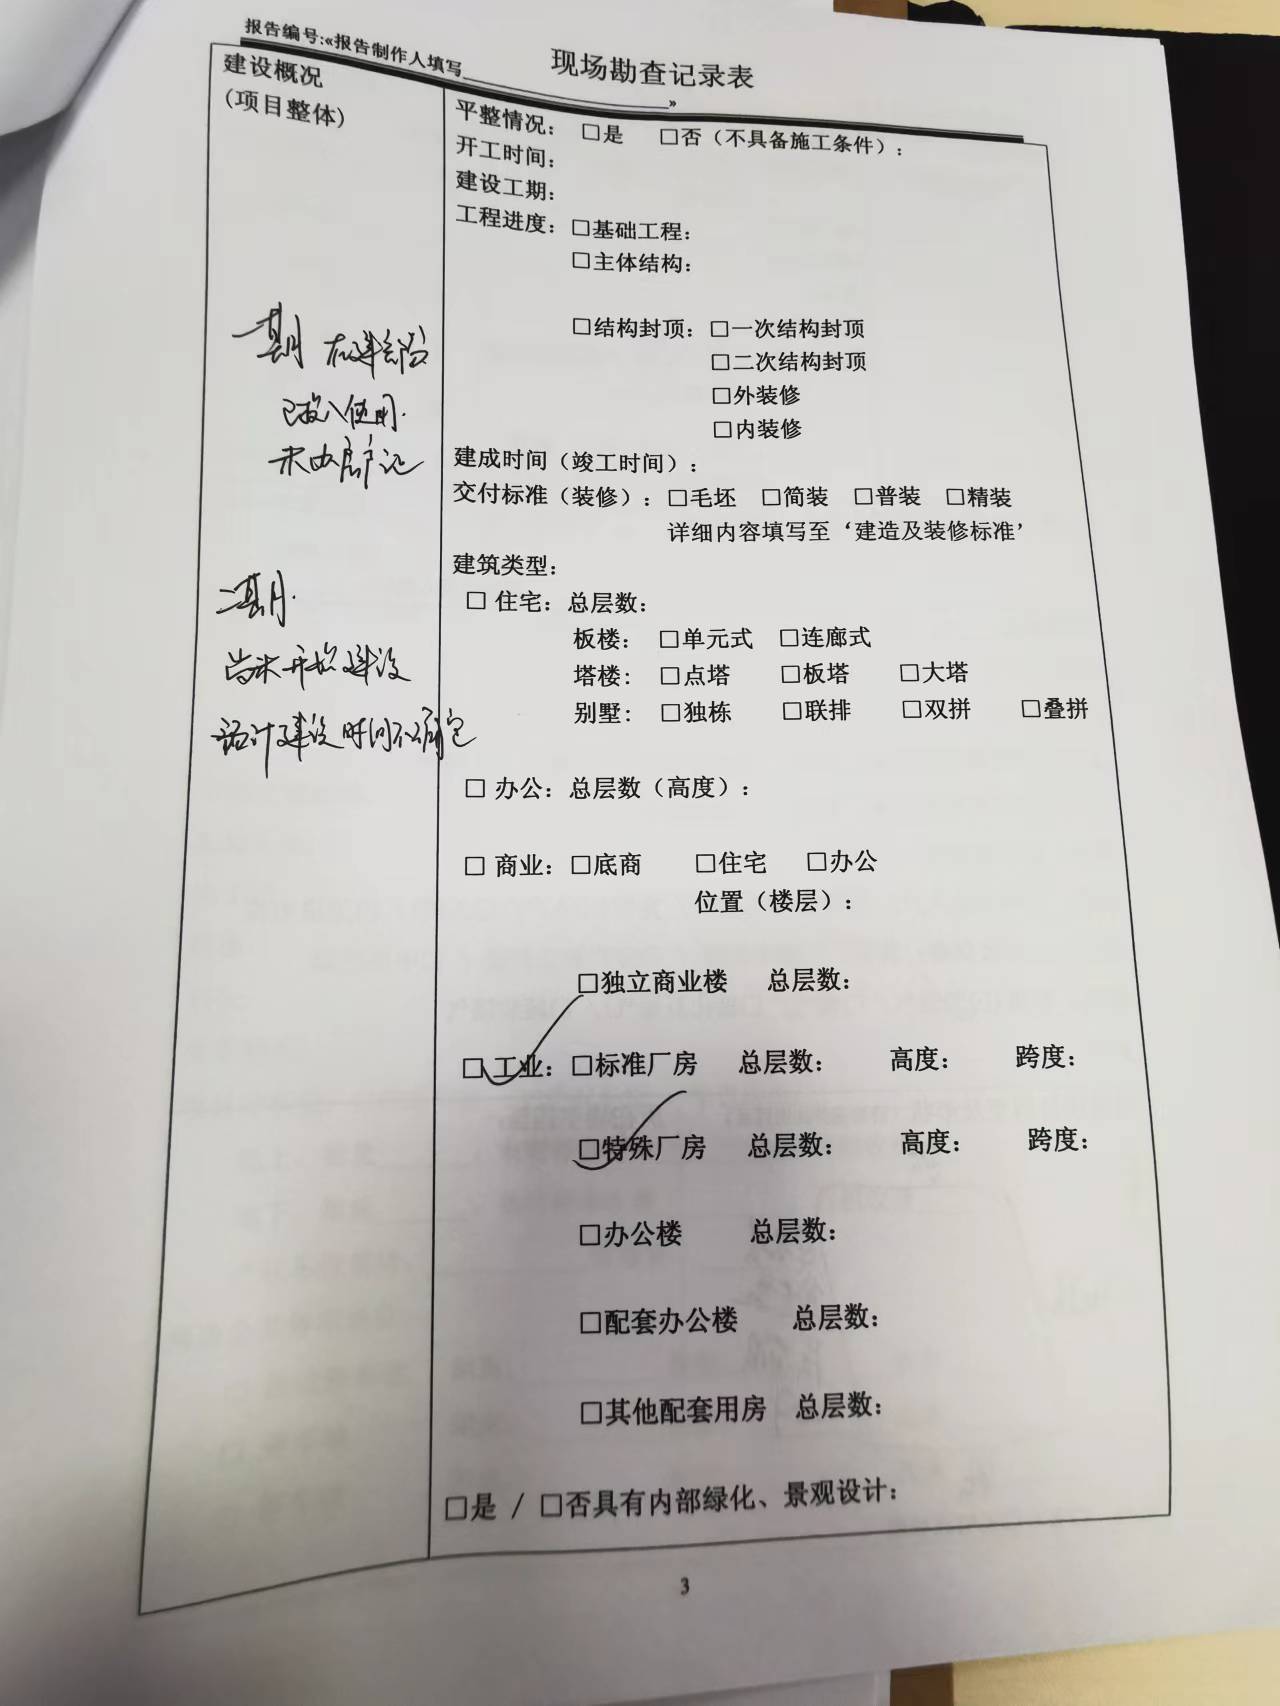 报告编号:«报告制作人填写________________»
现场勘查记录表
建设概况
(项目整体)
平整情况： □是 □否（不具备施工条件）：
开工时间：
建设工期：
工程进度：□基础工程：
□主体结构：
□结构封顶：□一次结构封顶
□二次结构封顶
□外装修
□内装修
建成时间（竣工时间）：
交付标准（装修）：□毛坯 □简装 □普装 □精装
详细内容填写至‘建造及装修标准’
建筑类型：
□ 住宅：总层数：
板楼： □单元式 □连廊式
塔楼： □点塔 □板塔 □大塔
别墅： □独栋 □联排 □双拼 □叠拼
□ 办公：总层数（高度）：
□ 商业：□底商 □住宅 □办公
位置（楼层）：
□独立商业楼 总层数：
□ 工业：□标准厂房 总层数： 高度： 跨度：
□特殊厂房 总层数： 高度： 跨度：
□办公楼 总层数：
□配套办公楼 总层数：
□其他配套用房 总层数：
□是 / □否具有内部绿化、景观设计：
一期 在建
已投入使用.
未办房产证
二期.
尚未开始建设
设计建设时间不确定
3